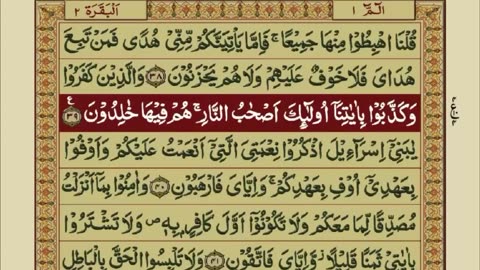 الٓمّٓ ١
اَلْبَقَرَة ٢
قُلْنَا اهْبِطُوْا مِنْهَا جَمِيْعًا ۚ فَاِمَّا يَاْتِيَنَّكُمْ مِّنِّيْ هُدًى فَمَنْ تَبِعَ
هُدَايَ فَلَا خَوْفٌ عَلَيْهِمْ وَلَا هُمْ يَحْزَنُوْنَ ﴿٣٨﴾ وَالَّذِيْنَ كَفَرُوْا
وَكَذَّبُوْا بِاٰيٰتِنَاۤ اُولٰٓئِكَ اَصْحٰبُ النَّارِ ۚ هُمْ فِيْهَا خٰلِدُوْنَ ﴿٣٩﴾ ع
يٰبَنِيْۤ اِسْرَآءِيْلَ اذْكُرُوْا نِعْمَتِيَ الَّتِيْۤ اَنْعَمْتُ عَلَيْكُمْ وَاَوْفُوْا
بِعَهْدِيْۤ اُوْفِ بِعَهْدِكُمْ ۚ وَاِيَّايَ فَارْهَبُوْنِ ﴿٤٠﴾ وَاٰمِنُوْا بِمَاۤ اَنْزَلْتُ
مُصَدِّقًا لِّمَا مَعَكُمْ وَلَا تَكُوْنُوْۤا اَوَّلَ كَافِرٍۭ بِهٖ ۪ وَلَا تَشْتَرُوْا
بِاٰيٰتِيْ ثَمَنًا قَلِيْلًا ؗ وَّاِيَّايَ فَاتَّقُوْنِ ﴿٤١﴾ وَلَا تَلْبِسُوا الْحَقَّ بِالْبَاطِلِ